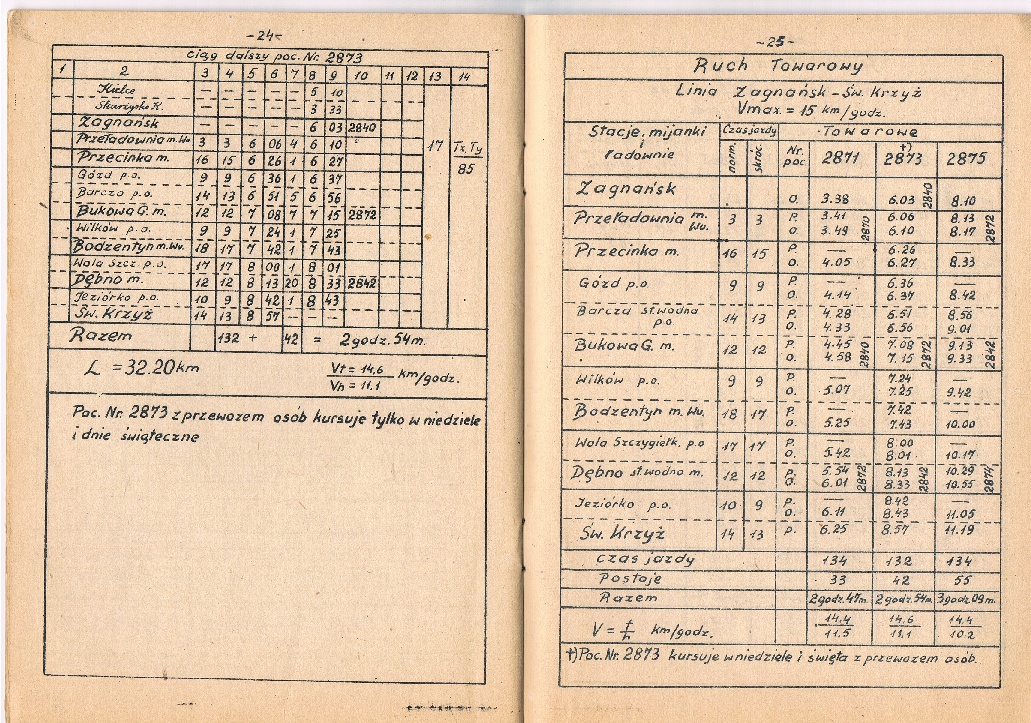 -24-
ciąg dalszy poc. Nr 2873
1 2 3 4 5 6 7 8 9 10 11 12 13 14
Kielce — — — — — 5 10
Skarżysko K. — — — — — 3 33
Zagnańsk — — — — — 6 03 2840
Przeładownia m. Wu 3 3 6 06 4 6 10 17 Tx, Ty
Przecinka m. 16 15 6 26 1 6 27 85
Gózd p.o. 9 9 6 36 1 6 37
Barcza p.o. 14 13 6 51 5 6 56
Bukowa G. m. 12 12 7 08 7 7 15 2872
Wilków p.o. 9 9 7 24 1 7 25
Bodzentyn m. Wu. 18 17 7 42 1 7 43
Wola Szcz. p.o. 17 17 8 00 1 8 01
Dębno m. 12 12 8 13 20 8 33 2842
Jeziórko p.o. 10 9 8 42 1 8 43
Św. Krzyż 14 13 8 57 — — —
Razem 132 + 42 = 2 godz. 54 m.
L = 32.20 km Vt = 14,6 km/godz.
Vh = 11.1
Poc. Nr. 2873 z przewozem osób kursuje tylko w niedziele
i dnie świąteczne
-25-
Ruch Towarowy
Linia Zagnańsk - Św. Krzyż
Vmax = 15 km/godz.
Stacje, mijanki i ładownie Czas jazdy Towarowe
norm. skróc Nr. poc. 2871 †) 2873 2875
Zagnańsk O. 3.38 6.03 2840 8.10
Przeładownia m. Wu. 3 3 P. 3.41 6.06 8.13
O. 3.49 2870 6.10 8.17 2872
Przecinka m. 16 15 P. — 6.26
O. 4.05 6.27 8.33
Gózd p.o 9 9 P. — 6.36 —
O. 4.14 6.37 8.42
Barcza st. wodna p.o. 14 13 P. 4.28 6.51 8.56
O. 4.33 6.56 9.01
Bukowa G. m. 12 12 P. 4.45 7.08 9.13
O. 4.58 2840 7.15 2872 9.33 2842
Wilków p.o. 9 9 P. — 7.24 —
O. 5.07 7.25 9.42
Bodzentyn m. Wu. 18 17 P. — 7.42 —
O. 5.25 7.43 10.00
Wola Szczygiełk. p.o 17 17 P. — 8.00 —
O. 5.42 8.01 10.17
Dębno st. wodna m. 12 12 P. 5.54 8.13 10.29
O. 6.01 2872 8.33 2842 10.55 2874
Jeziórko p.o. 10 9 P. — 8.42 —
O. 6.11 8.43 11.05
Św. Krzyż 14 13 P. 6.25 8.57 11.19
Czas jazdy 134 132 134
Postoje 33 42 55
Razem 2 godz. 47 m. 2 godz. 54 m. 3 godz. 09 m.
V = t/h km/godz. 14.4/11.5 14.6/11.1 14.4/10.2
†) Poc. Nr. 2873 kursuje w niedziele i święta z przewozem osób.